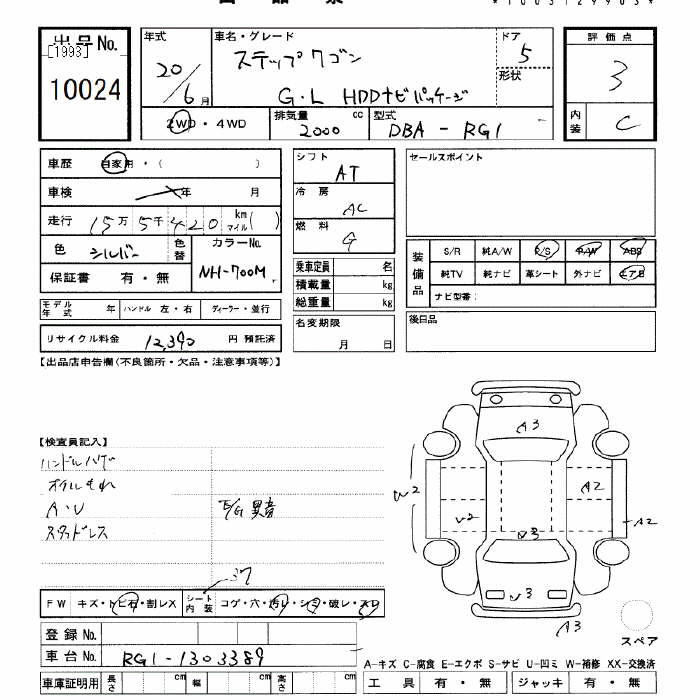 *1003129903*
出品No.
[1993]
10024
年式
20/6月
車名・グレード
ステップワゴン
G・L HDDナビパッケージ
ドア
5
形状
評価点
3
内装
C
2WD・4WD
排気量
2000 cc
型式
DBA - RG1
車歴 自家用・( )
車検 年 月
走行 15万5千420 km マイル( )
色 シルバー
色替
カラーNo.
NH-700M
保証書 有・無
モデル年式 年
ハンドル 左・右
ディーラー・並行
リサイクル料金 12,390 円 預託済
シフト
AT
冷房
AC
燃料
G
乗車定員 名
積載量 kg
総重量 kg
名変期限
月 日
セールスポイント
装備品
S/R 純A/W P/S P/W ABS
純TV 純ナビ 革シート 外ナビ エアB
ナビ型番:
後日品
【出品店申告欄(不良箇所・欠品・注意事項等)】
【検査員記入】
ハンドルハゲ
オイルもれ
A・U
スタッドレス
E/G 異音
A3
W2
A2
U2
A2
U3
U3
A3
スペア
FW キズ・トビ石・割レX
シート内装 コゲ・穴・汚レ・シミ・破レ・スレ
登録No.
車台No. RG1-1303389
車庫証明用 長さ cm 幅 cm 高さ cm
A-キズ C-腐食 E-エクボ S-サビ U-凹ミ W-補修 XX-交換済
工具 有・無 ジャッキ 有・無